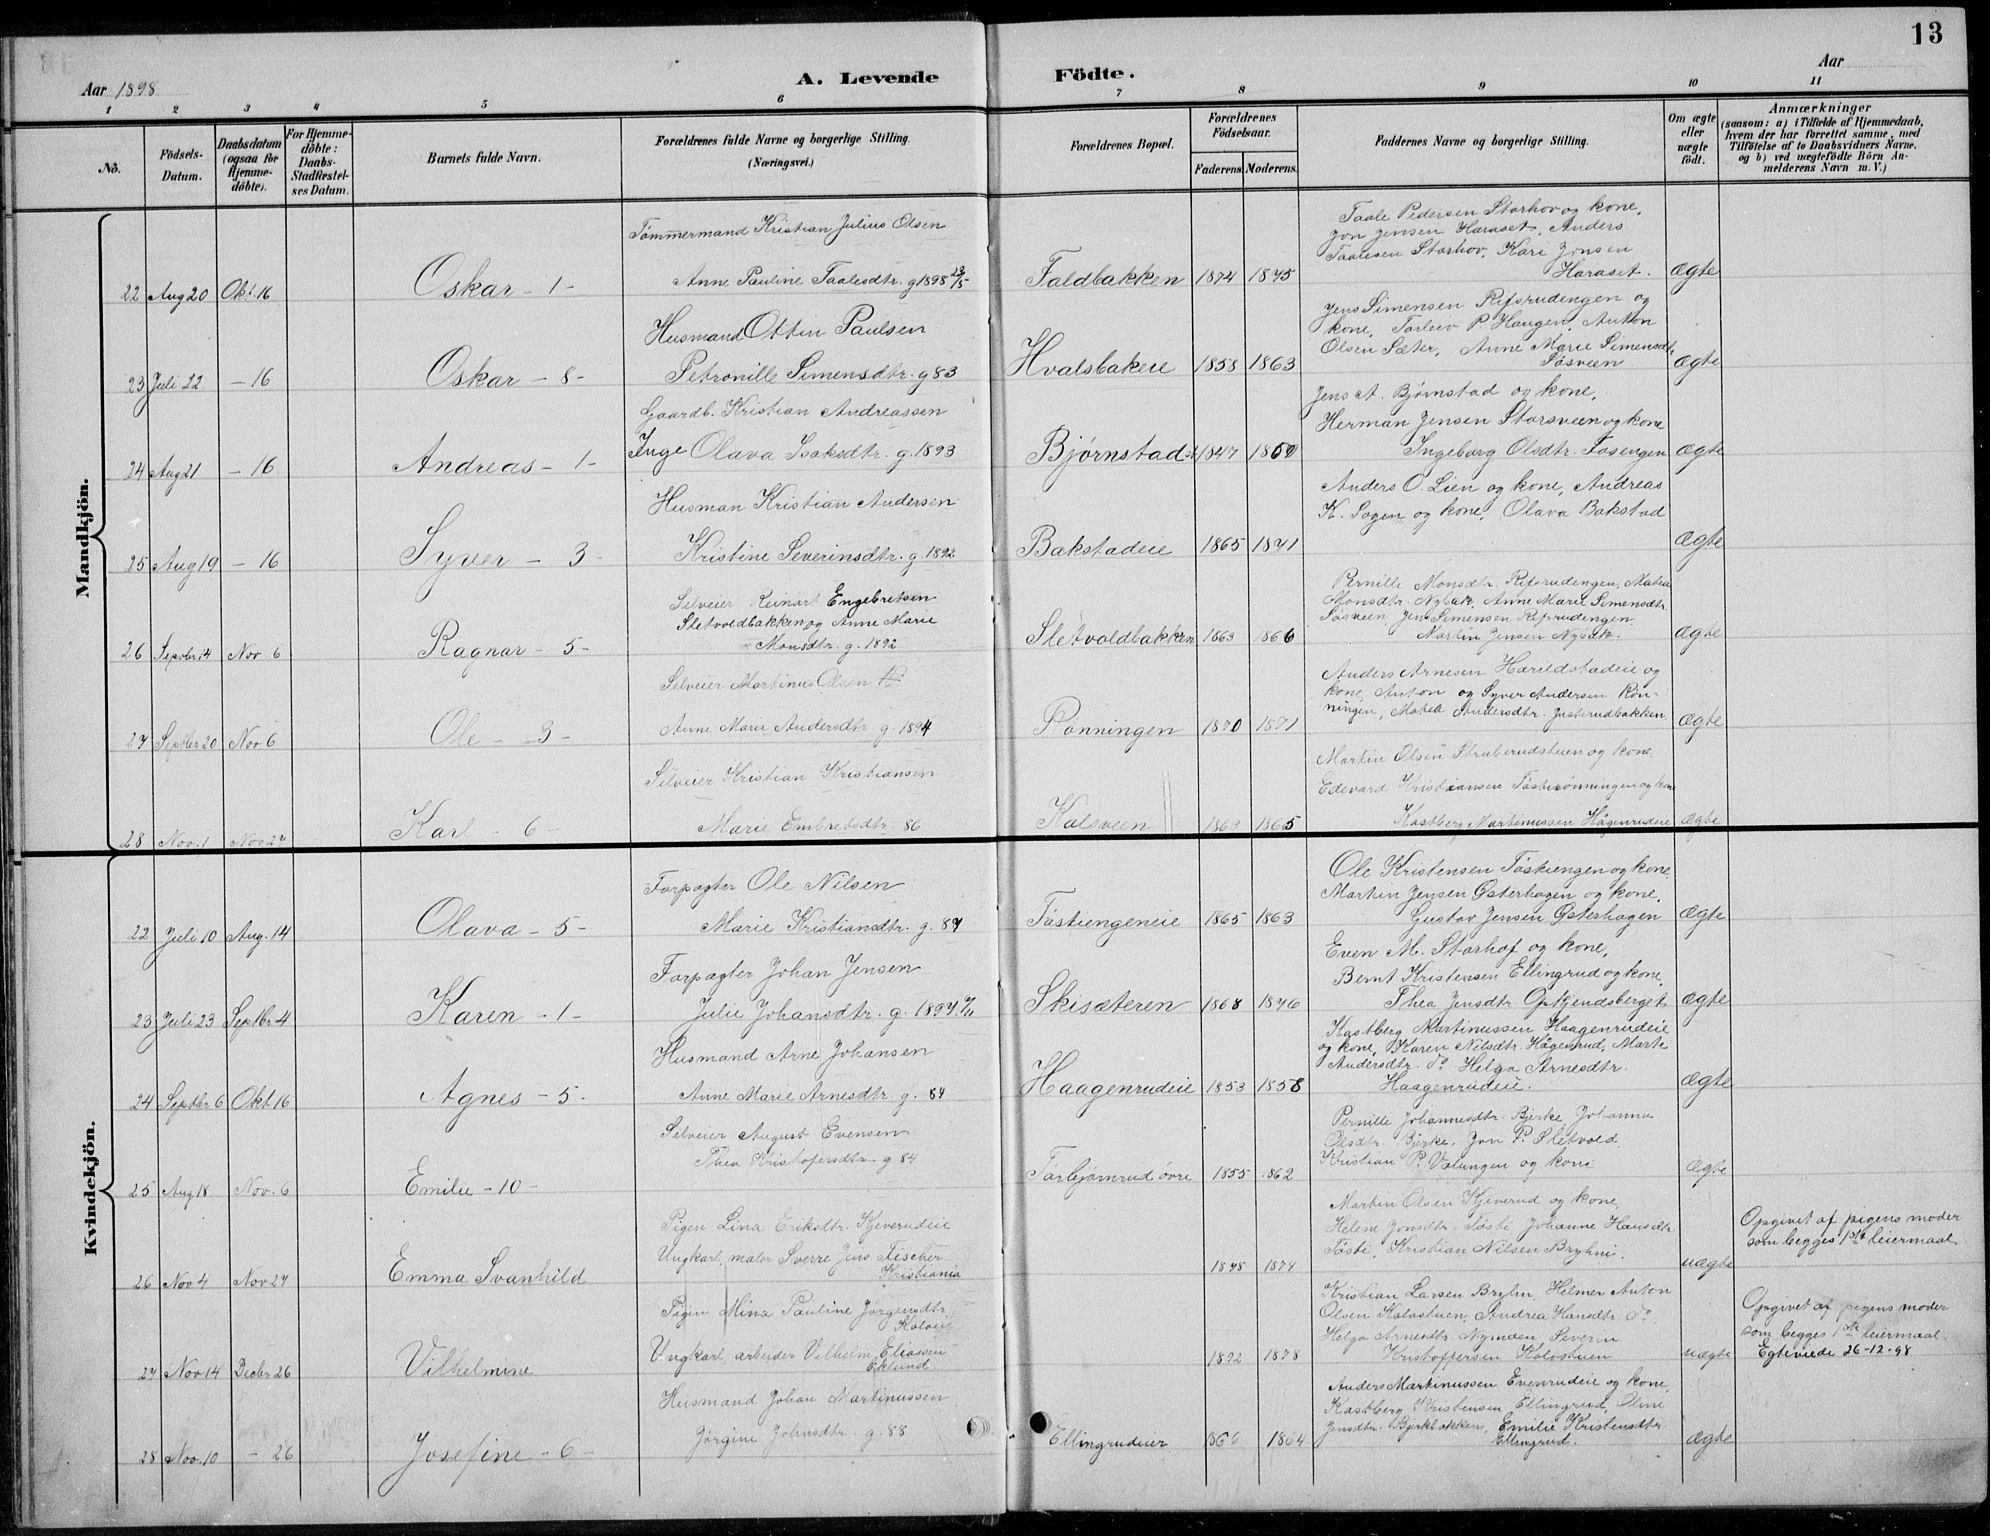 13
Aar 1898
A. Levende Födte.
Aar
1 2 3 4 5 6 7 8 9 10 11
No.
Födsels-Datum.
Daabsdatum (ogsaa for Hjemme-döbte).
For Hjemme-döbte: Daabs-Stadfæstel-ses Datum.
Barnets fulde Navn.
Forældrenes fulde Navne og borgerlige Stilling.
(Næringsvei.)
Forældrenes Bopæl.
Forældrenes Födselsaar.
Faderens. Moderens.
Faddernes Navne og borgerlige Stilling.
Om ægte eller uægte födt.
Anmærkninger
(saasom: a) i Tilfælde af Hjemmedaab, hvem der har forrettet samme, med Tilföielse af to Daabsvidners Navne, og b) ved uægtefödte Börn An-melderens Navn m. V.)
Mandkjön.
Tømmermand Kristian Julius Olsen
22 Aug 20 Okt. 16 Oskar - 1 - Anne Pauline Taalesdtr. g 1898 23/5 Faldbakken 1874 1875
Taale Pedersen Storhov og kone,
Jon Jensen Haraset, Anders
Taalesen Storhov, Kari Jonsen
Haraset. Ægte
Husmand Ottin Paulsen
23 Juli 22 - 16 Oskar - 8 - Petronille Simensdtr. g 83 Hvalsbakeie 1858 1863
Jens Simensen Rifsrudengen og
kone, Torleiv P Haugen, Anton
Olsen Sæter, Anne Marie Simensdtr.
Tøsveen Ægte
Gaardb. Kristian Andreassen
24 Aug 21 - 16 Andreas - 1 - Inge Olava Isaksdtr. g. 1893 Bjørnstad 1847 1850
Jens A. Bjørnstad og kone,
Herman Jensen Storsveen og kone
Ingeborg Olsdtr. Fosengen Ægte
Husman Kristian Andersen
25 Aug 19 - 16 Syver - 3 - Kristine Severinsdtr. g. 1892 Bakstadeie 1865 1871
Anders O. Lien og kone, Andreas
K. Sogen og kone, Olava Bakstad
Ægte
Selveier Reinart Engebretsen
Sletvoldbakken og Anne Marie
26 Septbr 14 Nov 6 Ragnar - 5 - Monsdtr. g. 1892 Sletvoldbakken 1863 1866
Pernille Monsdtr. Rifsrudengen, Mathea
Monsdtr. Nybak, Anne Marie Simensdtr.
Tøsveen, Jens Simensen Rifsrudengen.
Martin Jensen Nybak. Ægte
Selveier Martinus Olsen
27 Septbr 20 Nov 6 Ole - 3 - Anne Marie Andersdtr. g. 1894 Rønningen 1870 1871
Anders Arnesen Harildstadeie og
kone, Anton og Syver Andersen Røn-
ningen, Mathea Andersdtr. Justerudbakken. Ægte
Selveier Kristian Kristiansen
28 Nov. 1 Nov 27 Karl - 6 - Marie Embretsdtr. 86 Kalsveen 1863 1865
Martin Olsen Struberudstuen og kone
Edevard Kristiansen Tøstirønningen og kone
Kastberg Martinussen Hågenrudeie Ægte
Kvindekjön.
Forpagter Ole Nilsen
22 Juli 10 Aug. 14 Olava - 5 - Marie Kristiansdtr. g. 87 Tøstiengeneie 1865 1863
Ole Kristensen Tøstiengen og kone,
Martin Jensen Østerhagen og kone,
Gustav Jensen Østerhagen Ægte
Forpagter Johan Jensen
23 Juli 23 Septbr 4 Karen - 1 - Julie Johansdtr. g. 1897 7/11 Skisæteren 1868 1876
Even M. Storhof og kone,
Bernt Kristensen Ellingrud og kone,
Thea Jensdtr Opkjendsberget Ægte
Husmand Arne Johansen
24 Septbr 6 Okt 16 Agnes - 5 - Anne Marie Arnesdtr g. 84 Haagenrudeie 1853 1858
Kastberg Martinussen Haagenrudeie
og kone, Karen Nilsdtr. Hågenrud, Marte
Andersdtr. do Helga Arnesdtr.
Haagenrudeie. Ægte
Selveier August Evensen
Thea Kristofersdtr g 84
25 Aug 18 Nov. 6 Emilie - 10 - Torbjørnrud øvre 1855 1862
Pernille Johannesdtr. Bjerke, Johanna
Olsdtr. Bjerke. Jon P. Sletvold,
Kristian P. Volungen og kone Ægte
Pigen Lina Eriksdtr. Kjeverudeie
Ungkarl, maler Sverre Jens Fischer
Kristiania
26 Nov 4 Nov 27 Emma Svanhild 1878 1874
Martin Olsen Kjeverud og kone,
Helene Jonsdtr. Tøsti, Johanne Hansdtr.
Tøsti, Kristian Nilsen Bryhni. uægte
Opgivet af pigens moder
som begges 1ste leiermaal.
Pigen Mina Pauline Jørgensdtr.
Ungkarl, arbeider Vilhelm Eliassen
Eklund
27 Nov 14 Decbr 26 Vilhelmine 1872 1878
Kristian Larsen Bryhn, Helmer Anton
Olsen Kolostuen, Andrea Hansdtr. do.
Helga Arnesdtr. Nymoen, Severin
Kristoffersen Kolostuen uægte
Opgivet af pigens moder
som begges 1ste leiermaal.
Egteviede 26-12-98
Husmand Johan Martinussen
28 Nov. 10 - 26 Josefine - 6 - Jørgine Johnsdtr. g. 88 Ellingrudeier 1864
Anders Martinussen Evenrudeie og kone,
Kastberg Kristensen Ellingrud, Oline
Jensdtr. Bjerkbakken, Emilie Kristensdtr.
Ellingrud. Ægte